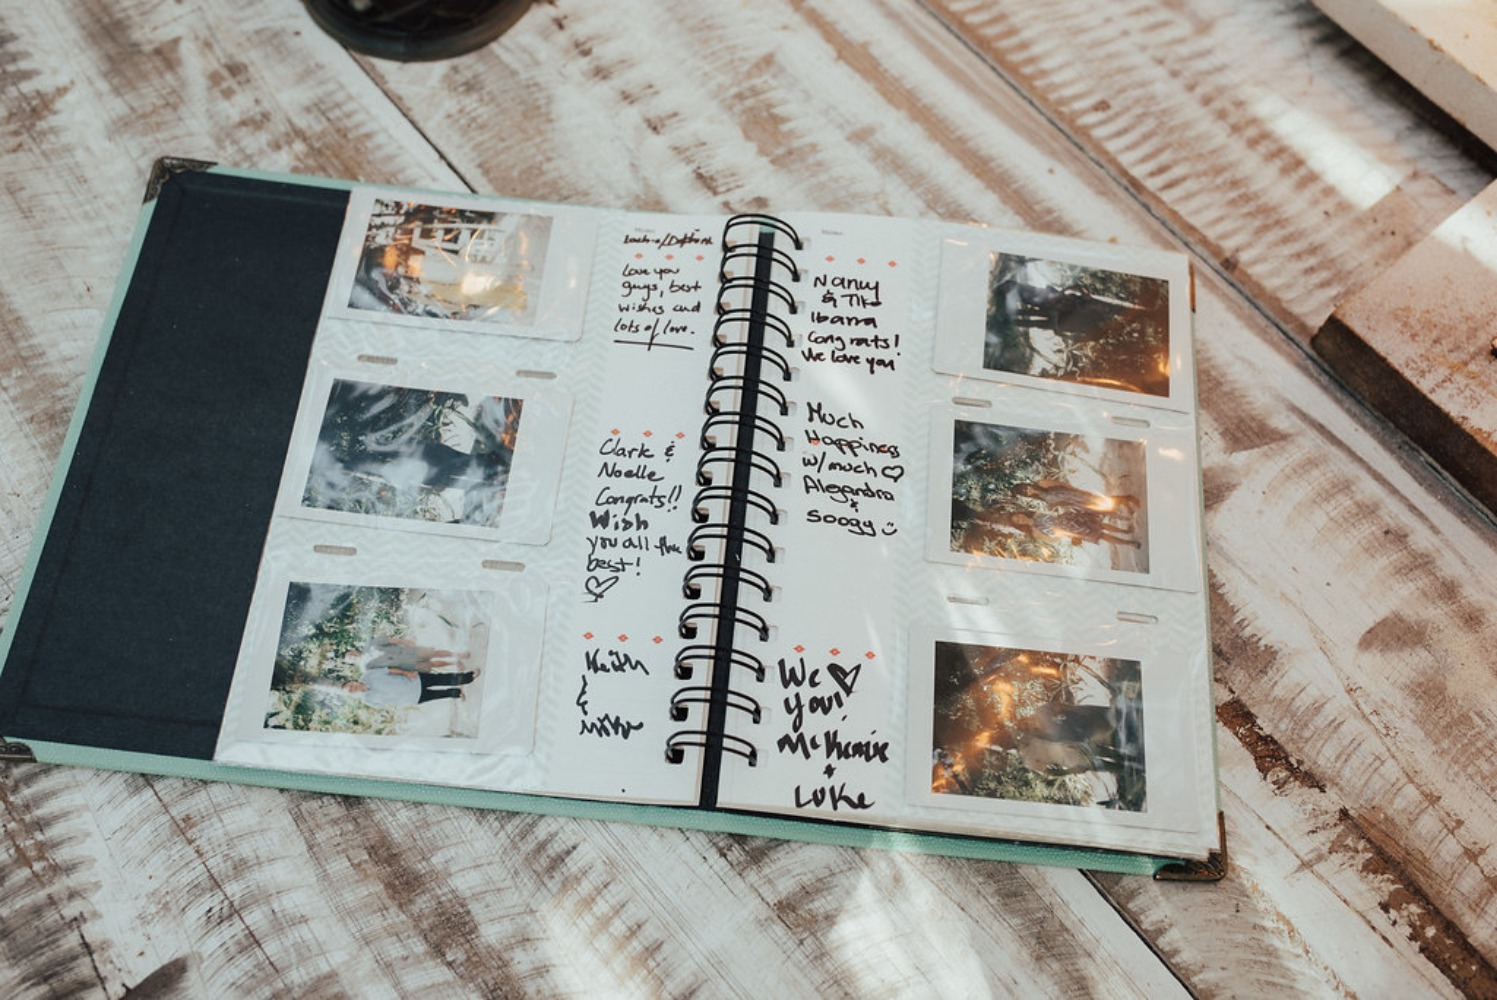 Love you
guys, best
wishes and
lots of love.
Clark &
Noelle
Congrats!!
Wish
you all the
best!
Keith
&
Nancy
& Tito
Ibarra
Congrats!
We love you
Much
Happiness
w/much ♡
Alejandra
&
Soogy
We ♡
you!
McKenzie
+
Luke